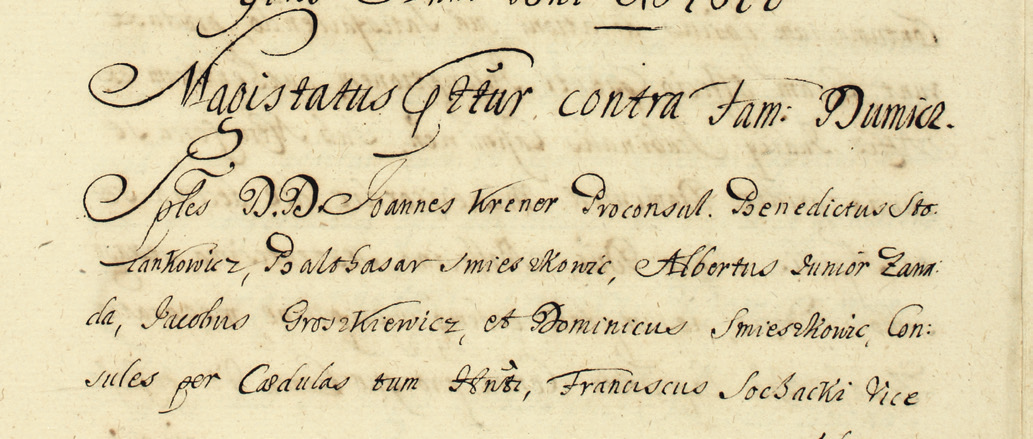 Magistatus contra Fam: Dumicz.
Sples D.D. Joannes Krener Proconsul. Benedictus Sto:
lankowicz, Balthasar Smieszkowic, Albertus Junior Zawa:
da, Jacobus Groszkiewicz, et Dominicus Smieszkowic, Con:
sules per Cædulas tum Franciscus Sochacki Vice